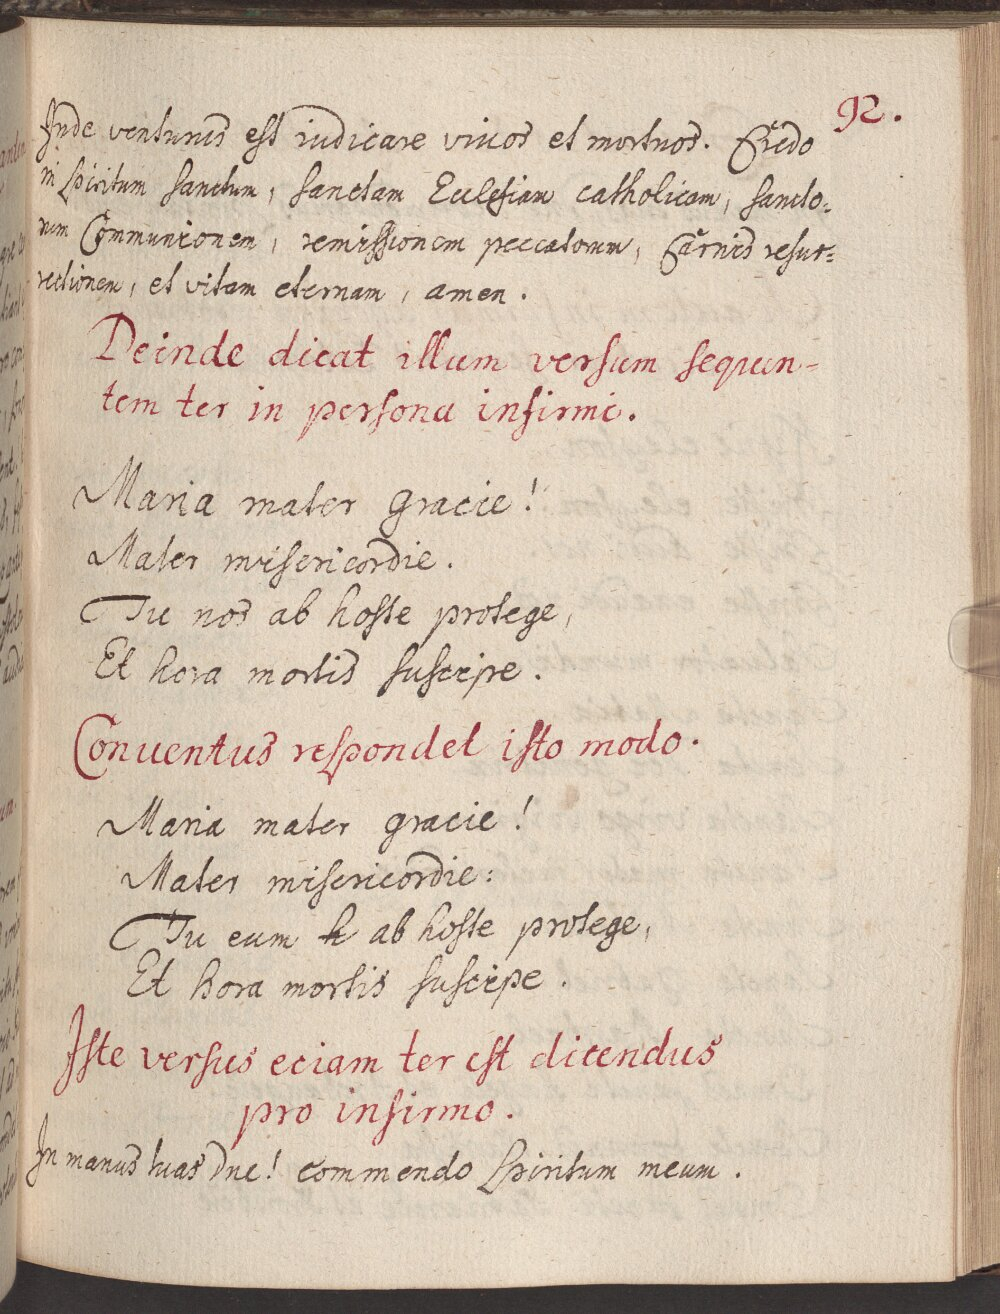 92.
Inde venturus est iudicare viuos et mortuos. Credo
in Spiritum sanctum, sanctam Ecclesiam catholicam, sancto-
rum Communionem, remissionem peccatorum, Carnis resur-
rectionem, et vitam eternam, amen.
Deinde dicat illum versum sequen-
tem ter in persona infirmi.
Maria mater gracie!
Mater misericordie.
Tu nos ab hoste protege,
Et hora mortis suscipe.
Conuentus respondet isto modo.
Maria mater gracie!
Mater misericordie:
Tu eum ab hoste protege,
Et hora mortis suscipe
Iste versus eciam ter est dicendus
pro infirmo.
In manus tuas Dne! commendo Spiritum meum.